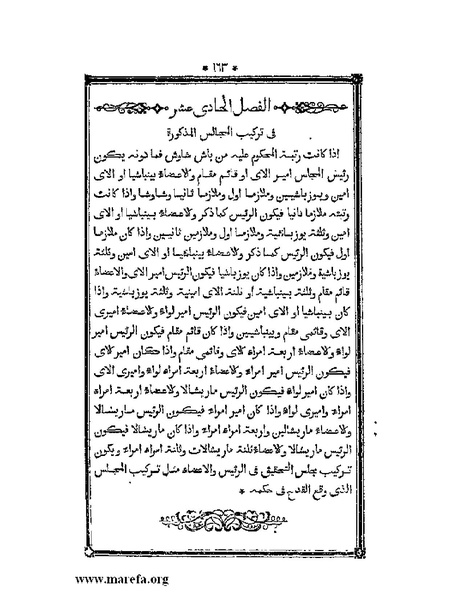 * ١٦٣ *
الفصل الحادى عشر
فى تركيب المجالس المذكورة
اذا كانت رتبة المحكوم عليه من باش شاوش فما دونه يكون
رئيس المجلس امير الاى او قائم مقام والاعضاء بينباشيا او الاى
امين ويوزباشيين وملازما اول وملازما ثانيا وشاوشا واذا كانت
رتبته ملازما ثانيا فيكون الرئيس كما ذكر والاعضاء بينباشيا او الاى
امين وثلثة يوزباشية وملازما اول وملازمين ثانيين واذا كان ملازما
اول فيكون الرئيس كما ذكر والاعضاء بينباشيا او الاى امين وثلثة
يوزباشية وملازمين واذا كان يوزباشيا فيكون الرئيس امير الاى والاعضاء
قائم مقام وثلثة بينباشية او ثلثة الاى امينية وثلثة يوزباشية واذا
كان بينباشيا او الاى امين فيكون الرئيس امير لواء والاعضاء اميرى
الاى وقائمى مقام وبينباشيين واذا كان قائم مقام فيكون الرئيس امير
لواء والاعضاء اربعة امراء الاى وقائمى مقام واذا كان امير الاى
فيكون الرئيس امير امراء والاعضاء اربعة امراء لواء واميرى الاى
واذا كان امير لواء فيكون الرئيس ماريشالا والاعضاء اربعة امراء
امراء واميرى لواء واذا كان امير امراء فيكون الرئيس ماريشالا
والاعضاء ماريشالين واربعة امراء امراء واذا كان ماريشالا فيكون
الرئيس ماريشالا والاعضاء ثلثة ماريشالات وثلثة امراء امراء ويكون
تركيب مجلس التحقيق فى الرئيس والاعضاء مثل تركيب المجلس
الذى وقع القدح فى حكمه *
www.marefa.org